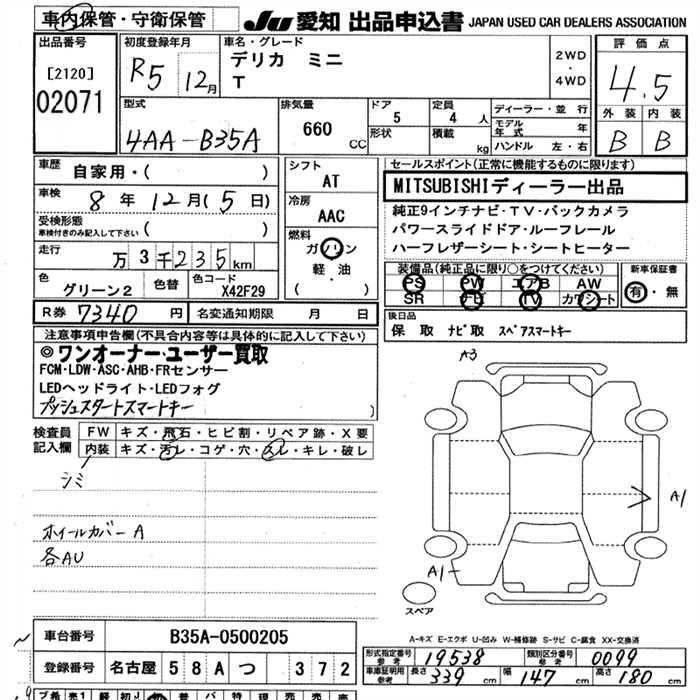 車内保管・守衛保管
JU 愛知 出品申込書 JAPAN USED CAR DEALERS ASSOCIATION
出品番号
[2120]
02071
初度登録年月
R5 12月
車名・グレード
デリカ ミニ
T
2WD
・
4WD
評価点
4.5
外装 内装
B B
型式
4AA-B35A
排気量
660 CC
ドア
5
形状
定員
4 人
積載
kg
ディーラー・並行
モデル年式 年
ハンドル 左・右
車歴
自家用・( )
車検
8年 12月 (5日)
受検形態
車検付きのみ記入して下さい ( )
走行
万 3 千 2 3 5 km
色
グリーン2
色替
色コード
X42F29
シフト
AT
冷房
AAC
燃料
ガソリン
軽・油
( )
セールスポイント(正常に機能するものに限ります)
MITSUBISHIディーラー出品
純正9インチナビ・TV・バックカメラ
パワースライドドア・ルーフレール
ハーフレザーシート・シートヒーター
装備品(純正品に限り○をつけてください)
PS PW エアB AW
SR ナビ TV カワシート
新車保証書
有・無
R券 7340 円
名変通知期限 月 日
後日品
保 取 ナビ取 スペアスマートキー
注意事項申告欄(不具合内容等は具体的に記入して下さい)
◎ワンオーナー・ユーザー買取
FCM・LDW・ASC・AHB・FRセンサー
LEDヘッドライト・LEDフォグ
プッシュスタートスマートキー
)
検査員記入欄
FW キズ・飛石・ヒビ割・リペア跡・X要
内装 キズ・汚レ・コゲ・穴・スレ・キレ・破レ
シミ
ホイールカバーA
各AU
A3
A1
A1
スペア
A-キズ E-エクボ U-凹み W-補修跡 S-サビ C-腐食 XX-交換済
車台番号
B35A-0500205
登録番号
名古屋 5 8 A つ 3 7 2
型式指定番号
参考
19538
類別区分番号
参考
0099
車庫証明用
参考
長さ 339 cm
幅 147 cm
高さ 180 cm